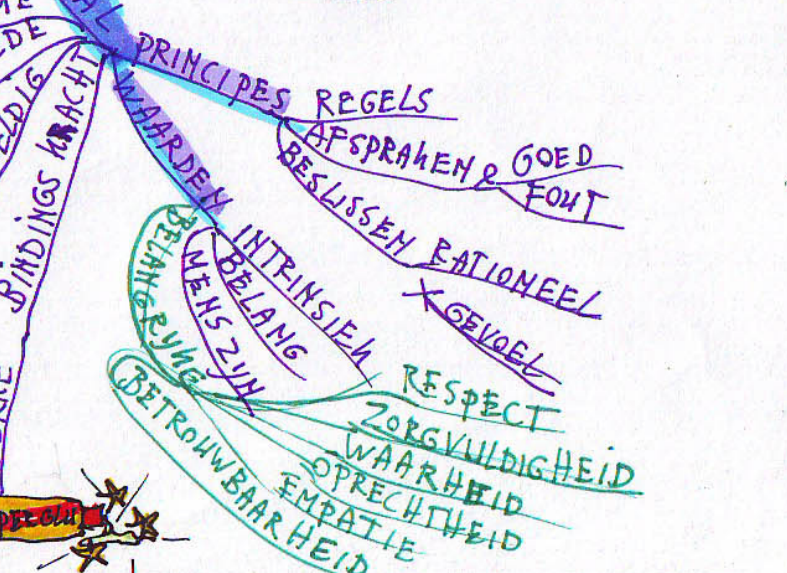 PRINCIPES
REGELS
AFSPRAKEN & GOED
FOUT
BESLISSEN RATIONEEL
GEVOEL
WAARDEN
INTRINSIEK
BELANG
MENS ZIJN
BELANGRYKE
RESPECT
ZORGVULDIGHEID
WAARHEID
OPRECHTHEID
EMPATIE
BETROUWBAARHEID
BINDINGS KRACHT